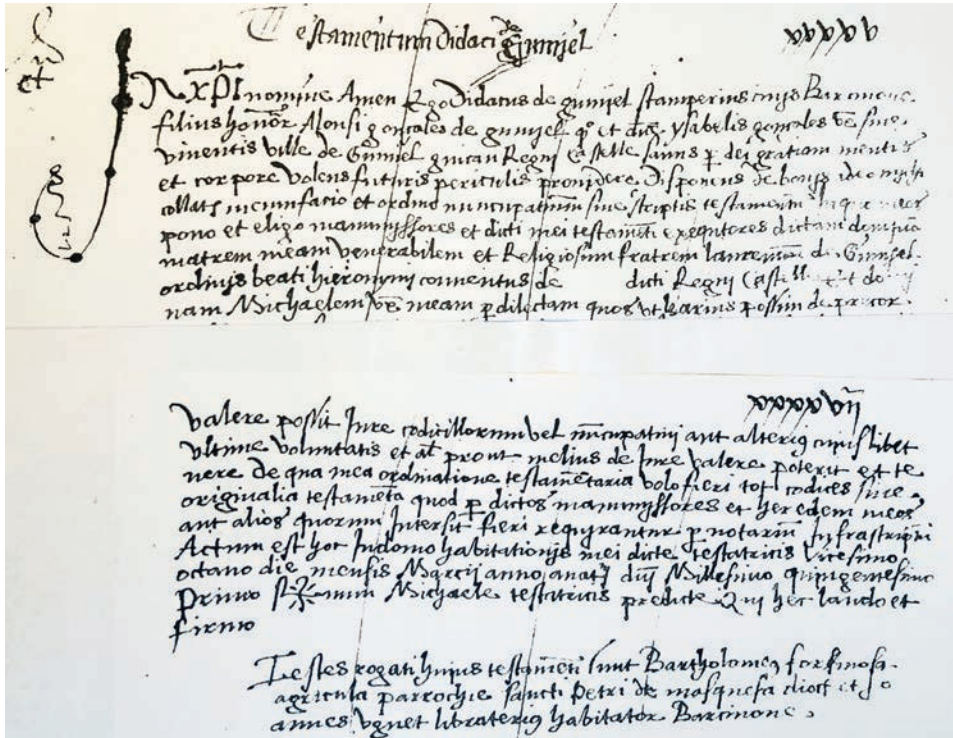 Testamentum Didaci de Gumjel
xxxxv
et
In Xpi nomine Amen Ego Didacus de gumjel stamperius civis Barcinone
filius honor Alonsi gonçales de gumjel qo et dne ysabelis gonçales
viventis ville de Gumjel Regni Castelle sanus p dei gratiam mentis
et corpore valens futuris periculis providere Disponens de bonis
collatis facio et ordino nuncupativum sine scriptis testamentum in quo
pono et eligo manumissores et dicti mei testamenti exequtores dictam dompnam
matrem meam venerabilem et Religiosum fratrem laurentium de Gumjel
ordinis beati hieronymi conventus de dicti Regni Castelle et do
nam Michaelem meam p dilectam quos possum
xxxxvij
valere possit Jure codicillorum vel nuncupativi aut alterius cujuslibet
ultime voluntatis et al prout melius de Jure valere poterit et te
nere De qua mea ordinatione testametaria volo fieri tot codices sive
originalia testameta quod p dictos manumissores et heredem meos
aut alios quorum Intersit fieri requirantur p notarium Infrascriptum
Actum est hoc Indomo habitationis mei dicte testatricis vicesimo
octavo die mensis Marcij anno anat dnj Millesimo quingentesimo
Primo sig num Michaele testatricis predicte Qui hec laudo et
firmo
Testes rogati hujus testamenti sunt Bartholomeus forfinosa
agricola parrochie sancti Petri de masquefa dioct et Jo
annes ugnet libraterius habitator Barcinone